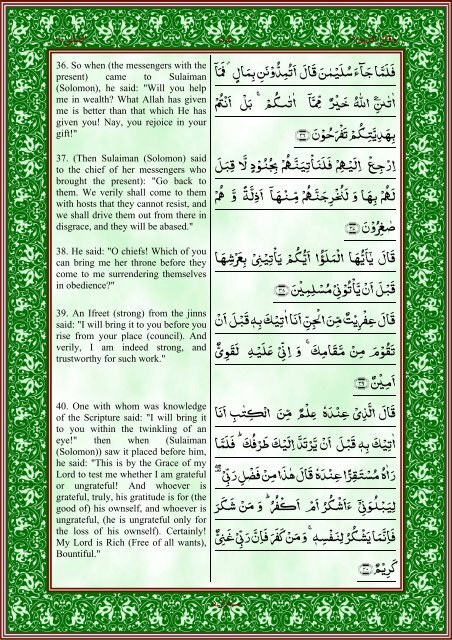 36. So when (the messengers with the
present) came to Sulaiman
(Solomon), he said: "Will you help
me in wealth? What Allah has given
me is better than that which He has
given you! Nay, you rejoice in your
gift!"
37. (Then Sulaiman (Solomon) said
to the chief of her messengers who
brought the present): "Go back to
them. We verily shall come to them
with hosts that they cannot resist, and
we shall drive them out from there in
disgrace, and they will be abased."
38. He said: "O chiefs! Which of you
can bring me her throne before they
come to me surrendering themselves
in obedience?"
39. An Ifreet (strong) from the jinns
said: "I will bring it to you before you
rise from your place (council). And
verily, I am indeed strong, and
trustworthy for such work."
40. One with whom was knowledge
of the Scripture said: "I will bring it
to you within the twinkling of an
eye!" then when (Sulaiman
(Solomon)) saw it placed before him,
he said: "This is by the Grace of my
Lord to test me whether I am grateful
or ungrateful! And whoever is
grateful, truly, his gratitude is for (the
good of) his ownself, and whoever is
ungrateful, (he is ungrateful only for
the loss of his ownself). Certainly!
My Lord is Rich (Free of all wants),
Bountiful."
فَلَمَّا جَآءَ سُلَيْمٰنَ قَالَ اَتُمِدُّوْنَنِ بِمَالٍ ۫ فَمَآ
اٰتٰىنِۦَ اللّٰهُ خَيْرٌ مِّمَّاۤ اٰتٰىكُمْ ۚ بَلْ اَنْتُمْ
بِهَدِيَّتِكُمْ تَفْرَحُوْنَ ﴿۳۶﴾
اِرْجِعْ اِلَيْهِمْ فَلَنَاْتِيَنَّهُمْ بِجُنُوْدٍ لَّا قِبَلَ
لَهُمْ بِهَا وَ لَنُخْرِجَنَّهُمْ مِّنْهَاۤ اَذِلَّةً وَّ هُمْ
صٰغِرُوْنَ ﴿۳۷﴾
قَالَ يٰۤاَيُّهَا الْمَلَؤُا اَيُّكُمْ يَاْتِيْنِيْ بِعَرْشِهَا
قَبْلَ اَنْ يَّاْتُوْنِيْ مُسْلِمِيْنَ ﴿۳۸﴾
قَالَ عِفْرِيْتٌ مِّنَ الْجِنِّ اَنَا اٰتِيْكَ بِهٖ قَبْلَ اَنْ
تَقُوْمَ مِنْ مَّقَامِكَ ۚ وَ اِنِّيْ عَلَيْهِ لَقَوِيٌّ
اَمِيْنٌ ﴿۳۹﴾
قَالَ الَّذِيْ عِنْدَهٗ عِلْمٌ مِّنَ الْكِتٰبِ اَنَا
اٰتِيْكَ بِهٖ قَبْلَ اَنْ يَّرْتَدَّ اِلَيْكَ طَرْفُكَ ؕ فَلَمَّا
رَاٰهُ مُسْتَقِرًّا عِنْدَهٗ قَالَ هٰذَا مِنْ فَضْلِ رَبِّيْ ۖ
لِيَبْلُوَنِيْۤ ءَاَشْكُرُ اَمْ اَكْفُرُ ؕ وَ مَنْ شَكَرَ
فَاِنَّمَا يَشْكُرُ لِنَفْسِهٖ ۚ وَ مَنْ كَفَرَ فَاِنَّ رَبِّيْ غَنِيٌّ
كَرِيْمٌ ﴿۴۰﴾